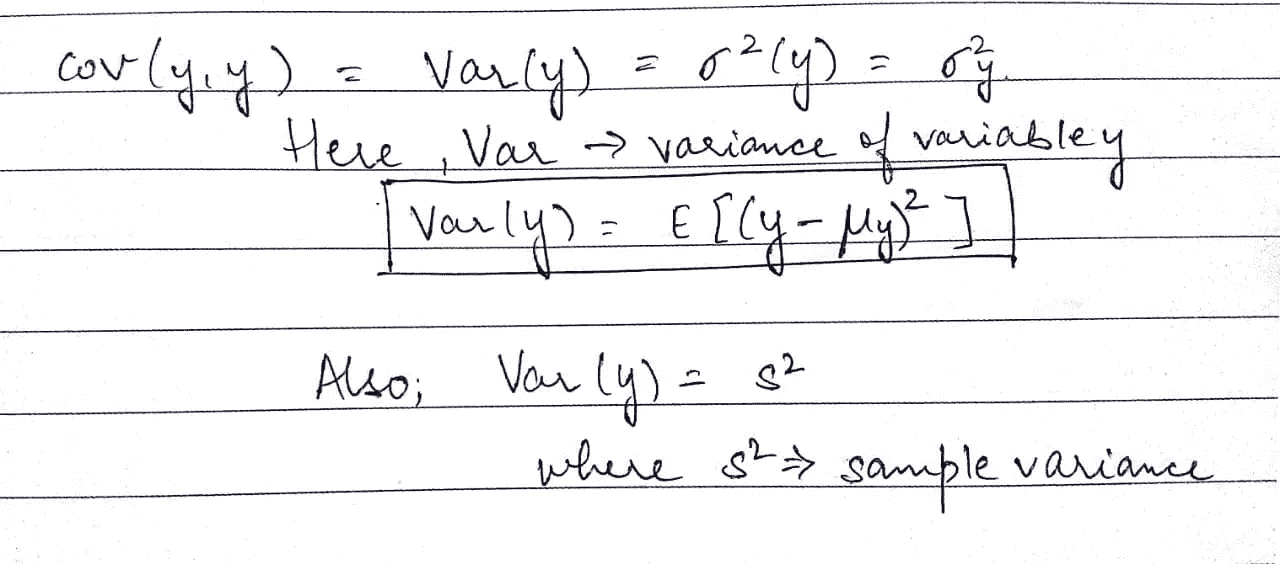 cov(y,y) = Var(y) = σ²(y) = σ²y.
Here, Var → variance of variable y
Var(y) = E[(y-μy)²]
Also; Var(y) = s²
where s² ⇒ sample variance